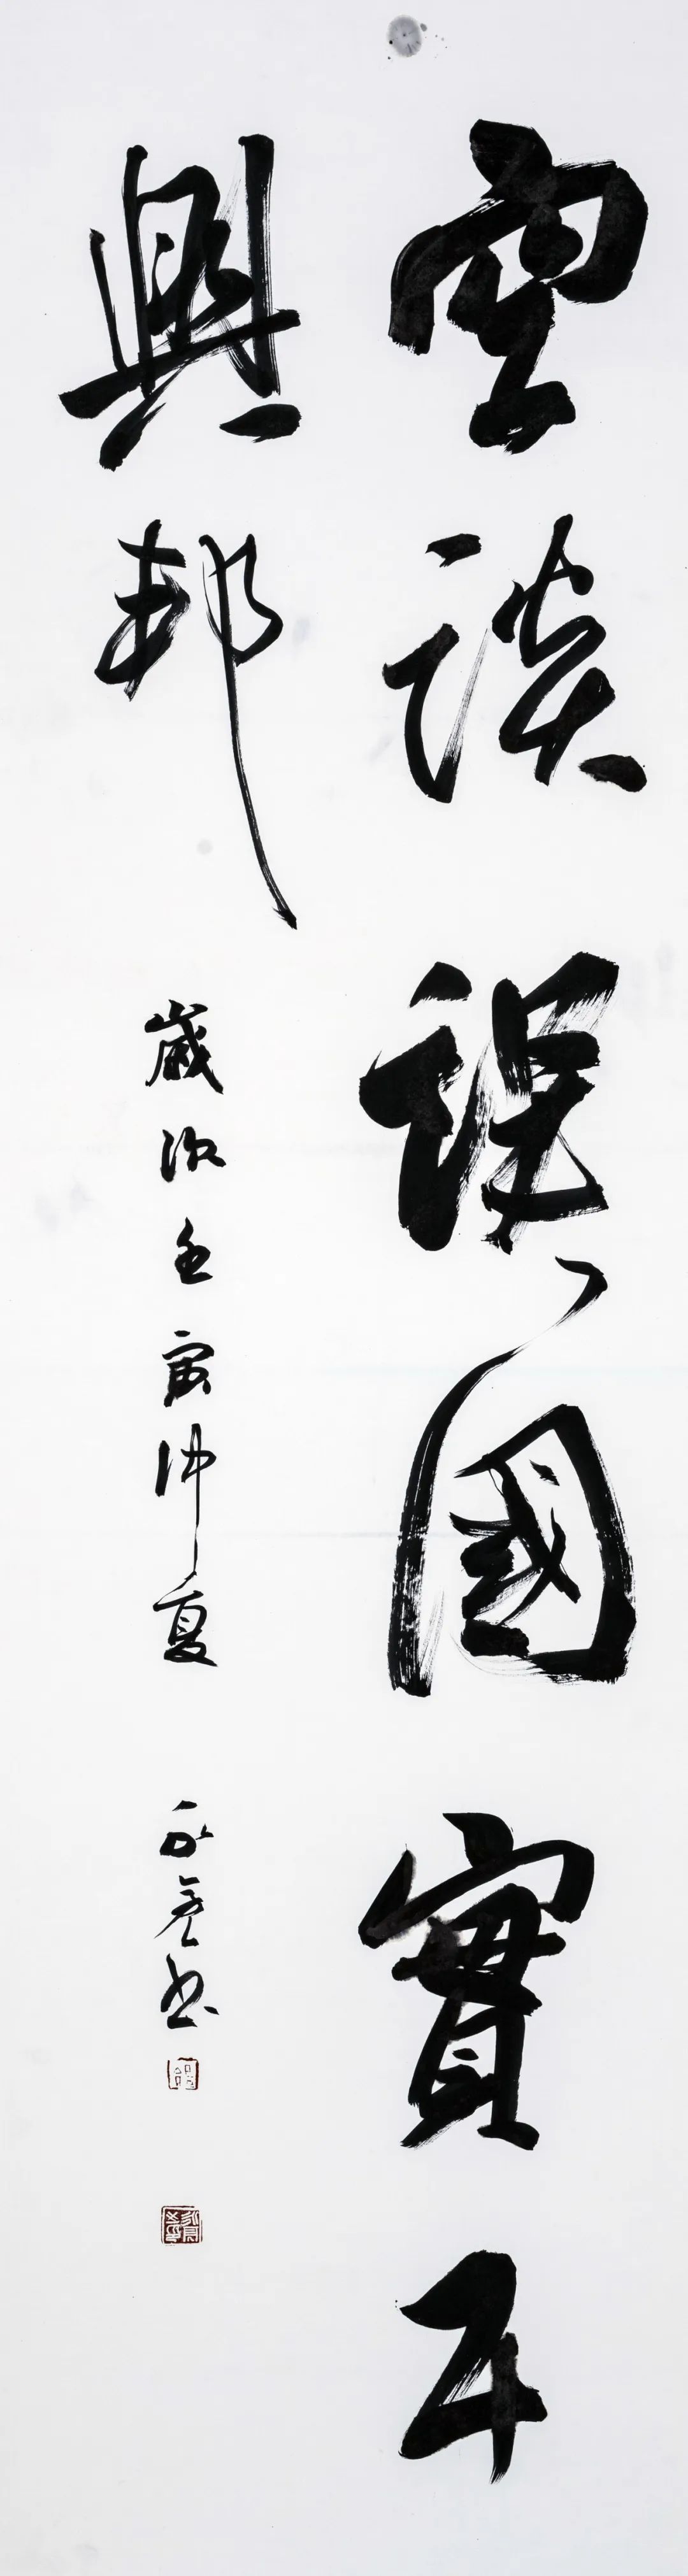 空談誤國實干
興邦 歲次壬寅仲夏 書